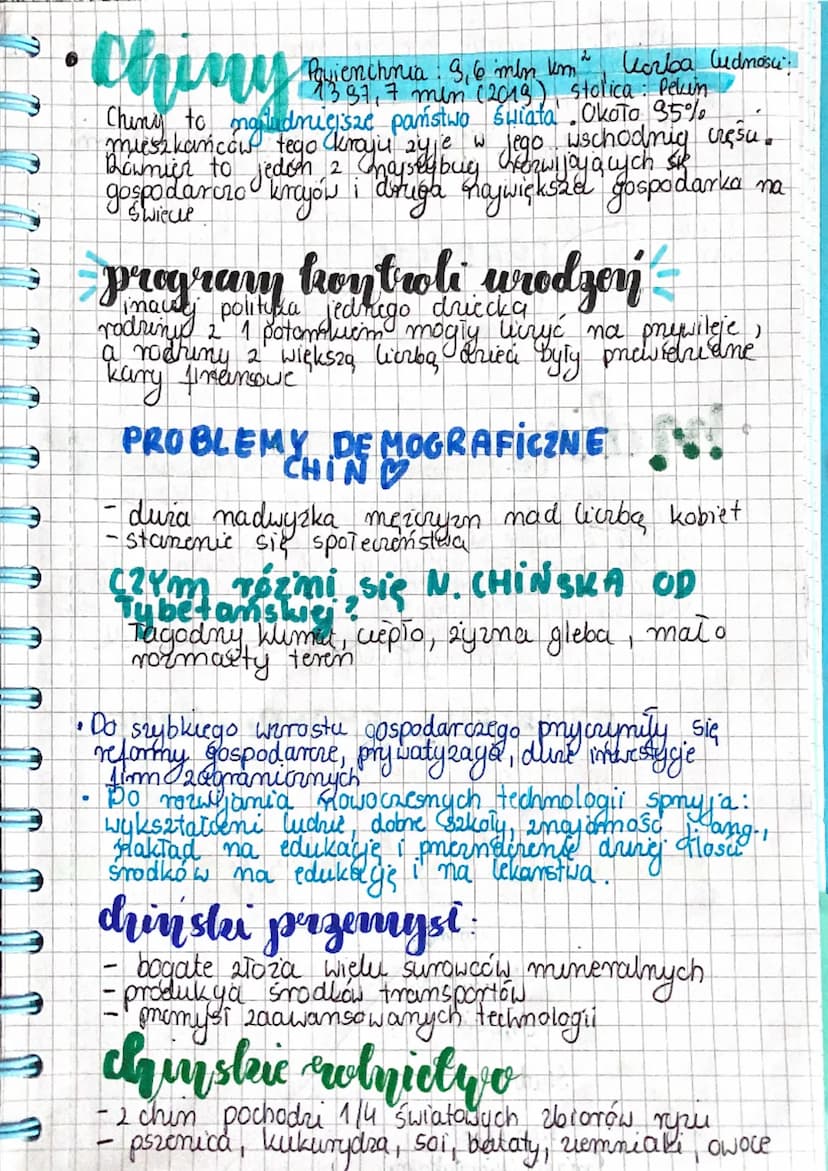 • Chiny Powierzchnia: 9,6 mln km², liczba ludności:
1397,7 mln (2019), stolica: Pekin
Chiny to najludniejsze państwo świata. Około 95%
mieszkańców tego kraju żyje w jego wschodniej części.
Również to jeden z najszybciej rozwijających się
gospodarczo krajów i druga największa gospodarka na
świecie
program kontroli urodzeń
inaczej polityka jednego dziecka
rodziny z 1 potomkiem mogły liczyć na przywileje,
a rodziny z większą liczbą dzieci były przewidziane
kary finansowe
PROBLEMY DEMOGRAFICZNE
CHIN
- duża nadwyżka mężczyzn nad liczbą kobiet
- starzenie się społeczeństwa
CZYM różni się N. CHIŃSKA OD
Tybetańskiej?
Łagodny klimat, ciepło, żyzna gleba, mało
rozmaity teren
• Do szybkiego wzrostu gospodarczego przyczyniły się
reformy gospodarcze, prywatyzacja, duże inwestycje
firm zagranicznych
• Do rozwijania nowoczesnych technologii sprzyja:
wykształceni ludzie, dobre szkoły, znajomość j. ang.,
nakład na edukację i przeznaczenie dużej ilości
środków na edukację i na lekarstwa.
chiński przemysł:
- bogate złoża wielu surowców mineralnych
- produkcja środków transportów
- przemysł zaawansowanych technologii
chińskie rolnictwo
- z chin pochodzi 1/4 światowych zbiorów ryżu
- pszenica, kukurydza, soi, bataty, ziemniaki, owoce